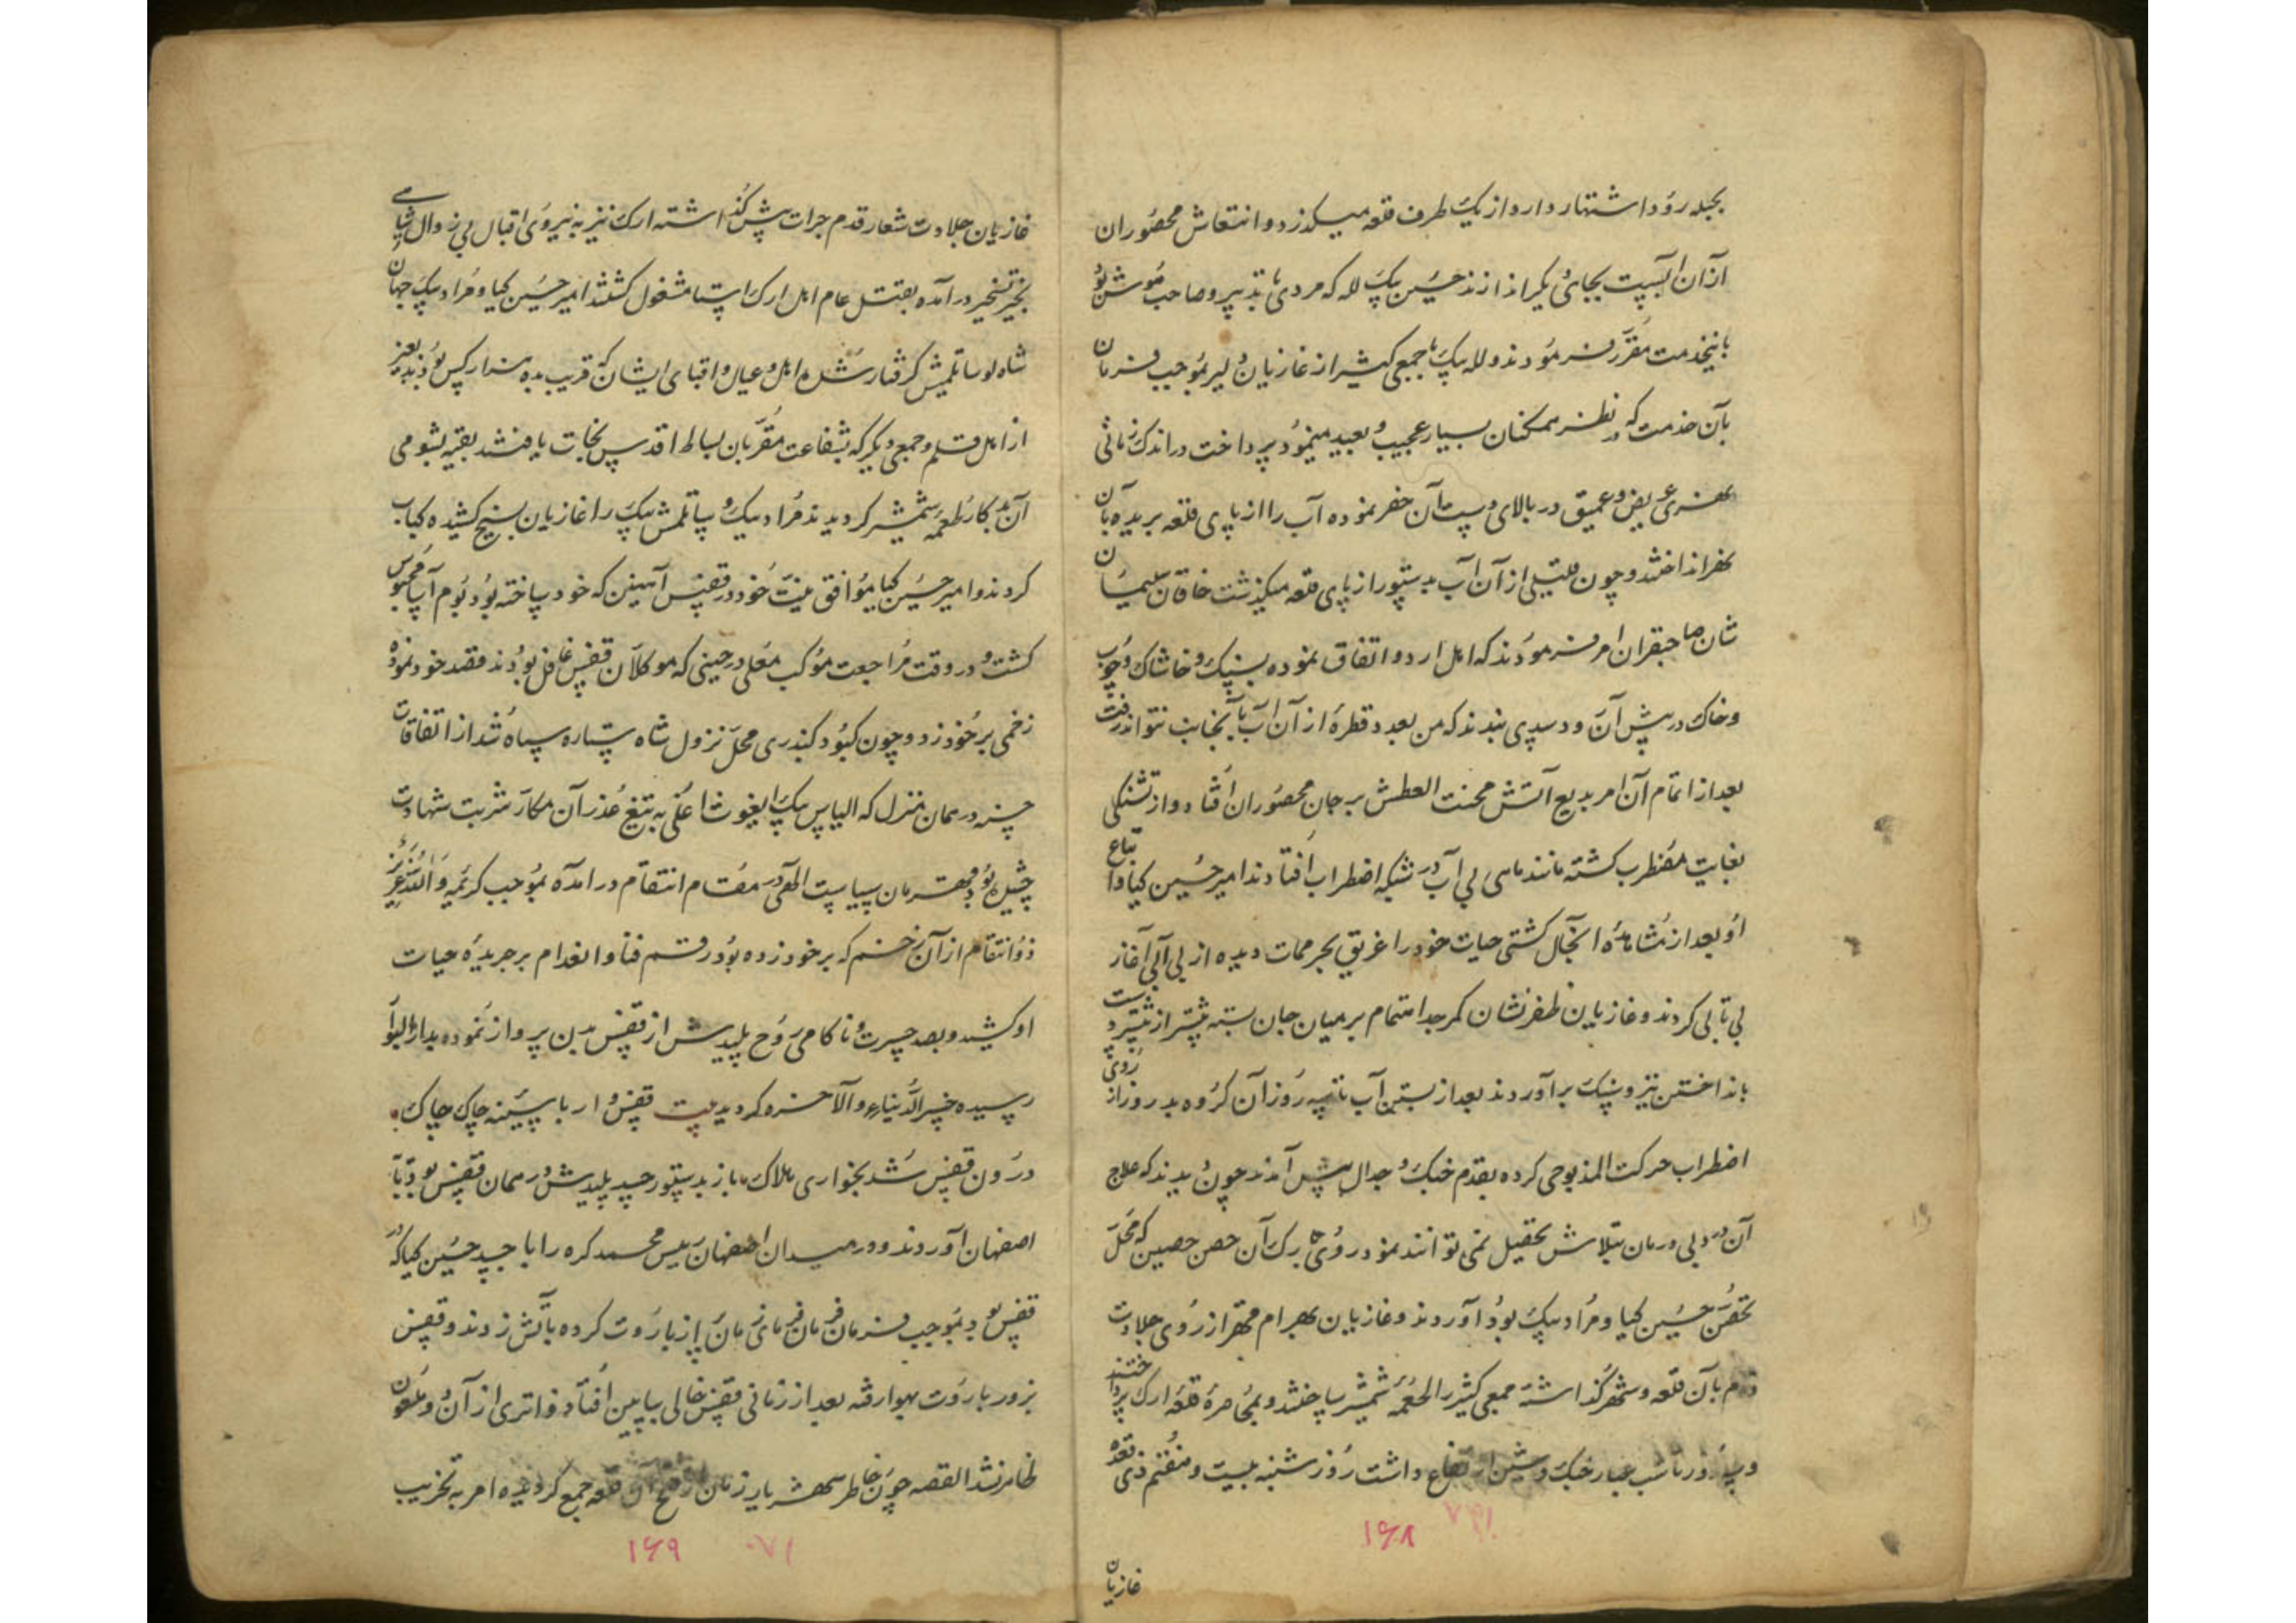 بحبله رود اشتهار دارد از یک طرف قلعه میگذرد و انتعاش محصوران
از آن آبست بجای دیگر اندازند حسین بیک لله که مردی با تدبیر و صاحب هوش بود
باینخدمت مقرر فرمودند و لله بیک با جمعی کثیر از غازیان دلیر بموجب فرمان
بآن خدمت که در نظر همکنان بسیار عجیب و بعید مینمود پرداخت در اندک زمانی
نهری عریض و عمیق در بالای دست آن حفر نموده آب را از پای قلعه بریده بآن
نهر انداختند و چون قلیلی از آن آب بدستور از پای قلعه میگذشت خاقان سلیمان
شان صاحبقران امر فرمودند که اهل اردو اتفاق نموده بسنک و خاشاک و چوب
و خاک در پیش آن رود سدی بندند که من بعد قطرهٔ از آن آب بآنجانب نتواند رفت
بعد از اتمام آن امر بدیع آتش محنت العطش بر جان محصوران افتاد و از تشنکی
بغایت مضطرب کشته مانند ماهی بی آب در شبکه اضطراب افتادند امیر حسین کیا و اتباع
او بعد از مشاهدهٔ اینحال کشتی حیات خود را غریق بحر ممات دیده از بی آبی آغاز
بی تابی کردند و غازیان ظفر نشان کمر جد و اهتمام بر میان جان بسته بیشتر از پیشتر دست
بانداختن تیر و سنک برآوردند بعد از بستن آب تا سه روز آن کروه بد روز از روی
اضطراب حرکت المذبوحی کرده بقدم جنک و جدال پیش آمدند چون دیدند که علاج
آن درد بی درمان بتلاش تحصیل نمی توانند نمود روی بارک آن حصن حصین که محل
تحصن حسین کیا و مراد بیک بود آوردند و غازیان بهرام قهر از روی جلادت
قدم بآن قلعه و شهر گذاشته جمعی کثیر را لقمهٔ شمشیر ساختند و بمحاصرهٔ قلعه ارک پرداختند
و سه روز تا شب غبار جنک و شین ارتفاع داشت روز شنبه بیست و هفتم ذی قعده
۱۶۸
غازیان
غازیان جلادت شعار قدم جرات پیش گذاشته ارک نیز به نیروی اقبال بی زوال شاهی
بحیز تسخیر درآمده بقتل عام اهل ارک استا مشغول کشتند امیر حسین کیا و مراد بیک جهان
شاه لو ساتلمیش کرفتار شد و اهل و عیال و اقبای ایشان که قریب بده هزار کس بودند بغیر
از اهل قلم و جمعی دیکر که بشفاعت مقربان بساط اقدس نجات یافتند بقیه بشومی
آن بد کار طعمه شمشیر کردیدند مراد بیک و ساتلمش بیک را غازیان بسیخ کشیده کباب
کردند و امیر حسین کیا موافق نیت خود در قفس آهنین که خود ساخته بود بوم آسا محبوس
کشت و در وقت مراجعت موکب معلی در حینی که موکلان قفس غافل بودند قصد خود نموده
زخمی بر خود زد و چون کبود کنبدی محل نزول شاه ستاره سپاه شد از اتفاقات
حسنه در همان منزل که الیاس بیک ایغوث اغلی به تیغ غدر آن مکار شربت شهادت
چشیده بود قهرمان سیاست الهی در مقام انتقام درآمده بموجب کریمه و الله عزیز
ذو انتقام از آن زخم که بر خود زده بود رقم فنا و انعدام بر جریدهٔ حیات
او کشید و بصد حسرت و ناکامی روح پلیدش از قفس بدن پرواز نموده بدار البوار
رسیده خسر الدنیا و الآخره کردید بیت قفس وار با سینه چاک چاک
درون قفس شد بخواری هلاک باز بدستور جسد پلیدش در همان قفس بود تا به
اصفهان آوردند و در میدان اصفهان رئیس محمد کره را با جسد حسین کیا که در
قفس بود بموجب فرمان فرمانفرمای زمان پر از باروت کرده بآتش زدند و قفس
بزور باروت بهوا رفته بعد از زمانی قفس خالی بپایین افتاد و اثری از آن دو ملعون
ظاهر نشد القصه چون خاطر شهریار زمان از فتح آن قلعه جمع کردیده امر به تخریب
۱۶۹